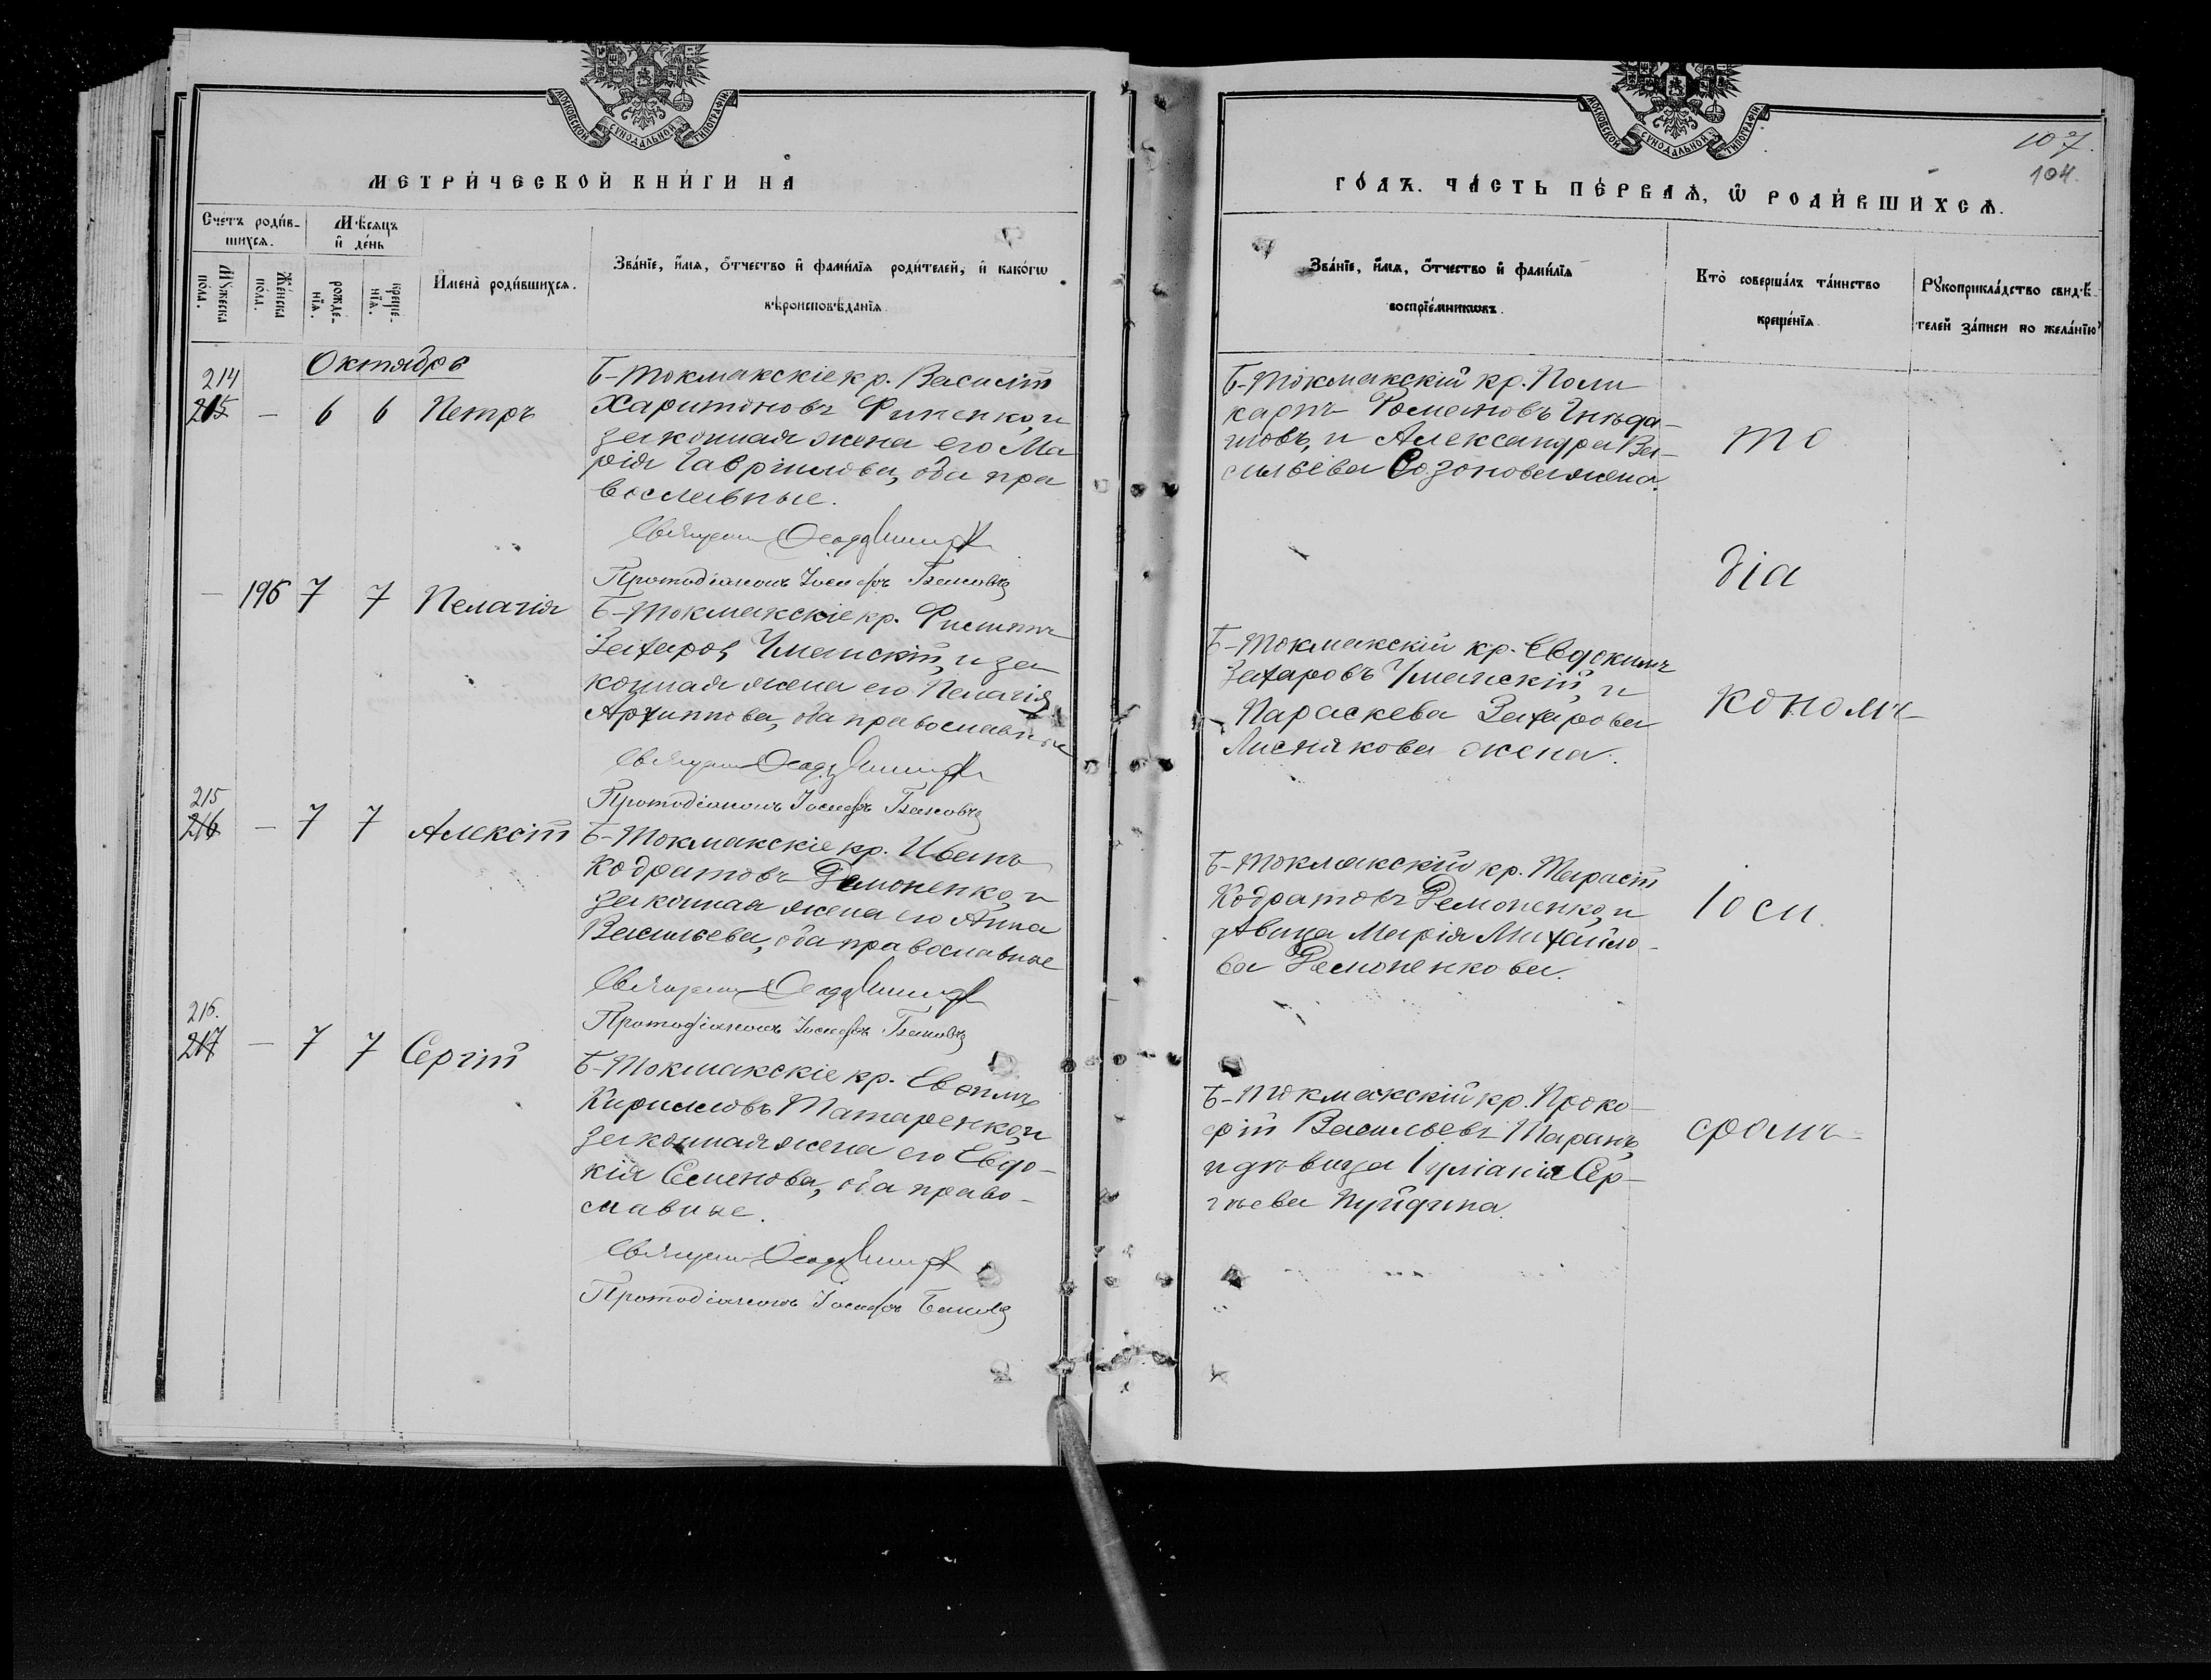 МОСКОВСКОЙ СѴНОДАЛЬНОЙ ТИПОГРАФІИ
МЕТРИ́ЧЕСКОЙ КНИ́ГИ НА̀
Сче́тъ роди́в-
шихсѧ.
Мѣ́сѧцъ
и҆ де́нь
Мꙋ́жеска
по́ла.
Же́нска
по́ла.
рожде́-
нїѧ.
креще́-
нїѧ.
И҆мена̀ роди́вшихсѧ.
Зва́нїе, и҆́мѧ, ѻ҆́тчество и҆ фами́лїѧ роди́телей, и҆ како́гѡ
вѣроисповѣ́данїѧ.
Октябрь
214
215
—
6
6
Петръ
Б-Токмакскіе кр. Василій
Харитоновъ Фипенко, и
законная жена его Ма
рія Гавріилова, оба пра
вославные.
Протодіаконъ Іосифъ
—
196
7
7
Пелагія
Б-Токмакскіе кр. Филиппъ
Захаровъ Уманскій, и за
конная жена его Пелагія
Архиппова, оба православные
Протодіаконъ Іосифъ
215
216
—
7
7
Алексій
Б-Токмакскіе кр. Иванъ
Кодратовъ Демоненко, и
законная жена его Анна
Васильева, оба православные
Протодіаконъ Іосифъ
216.
217
—
7
7
Сергій
Б-Токмакскіе кр. Евѳимъ
Кирилловъ Татаренко, и
законная жена его Евдо-
кія Семенова, оба право-
славные.
Протодіаконъ Іосифъ
МОСКОВСКОЙ СѴНОДАЛЬНОЙ ТИПОГРАФІИ
107.
104.
ГО́ДЪ. ЧА́СТЬ ПЕ́РВАѦ, Ѡ҆ РОДИ́ВШИХСѦ.
Зва́нїе, и҆́мѧ, ѻ҆́тчество и҆ фами́лїѧ
воспрїе́мникѡвъ.
Кто̀ соверша́лъ та́инство
креще́нїѧ.
Рꙋкоприкла́дство свидѣ́-
телей за́писи по жела́нїю
Б-Токмакскій кр. Поли
карпъ Романовъ
и Александра Ва-
сильева Созонова жена.
то
діа
Б-Токмакскій кр. Евдокимъ
Захаровъ Уманскій, и
Параскева Захарова
Лиснякова жена.
кономъ
Б-Токмакскій кр. Тарасій
Кодратовъ Демоненко, и
дѣвица Марія Михайло-
ва Демоненкова.
Іоси
Б-Токмакскій кр. Проко-
фій Васильевъ Таранъ,
и дѣвица Іуліанія Сер-
гѣева Пуйдина.
фомъ